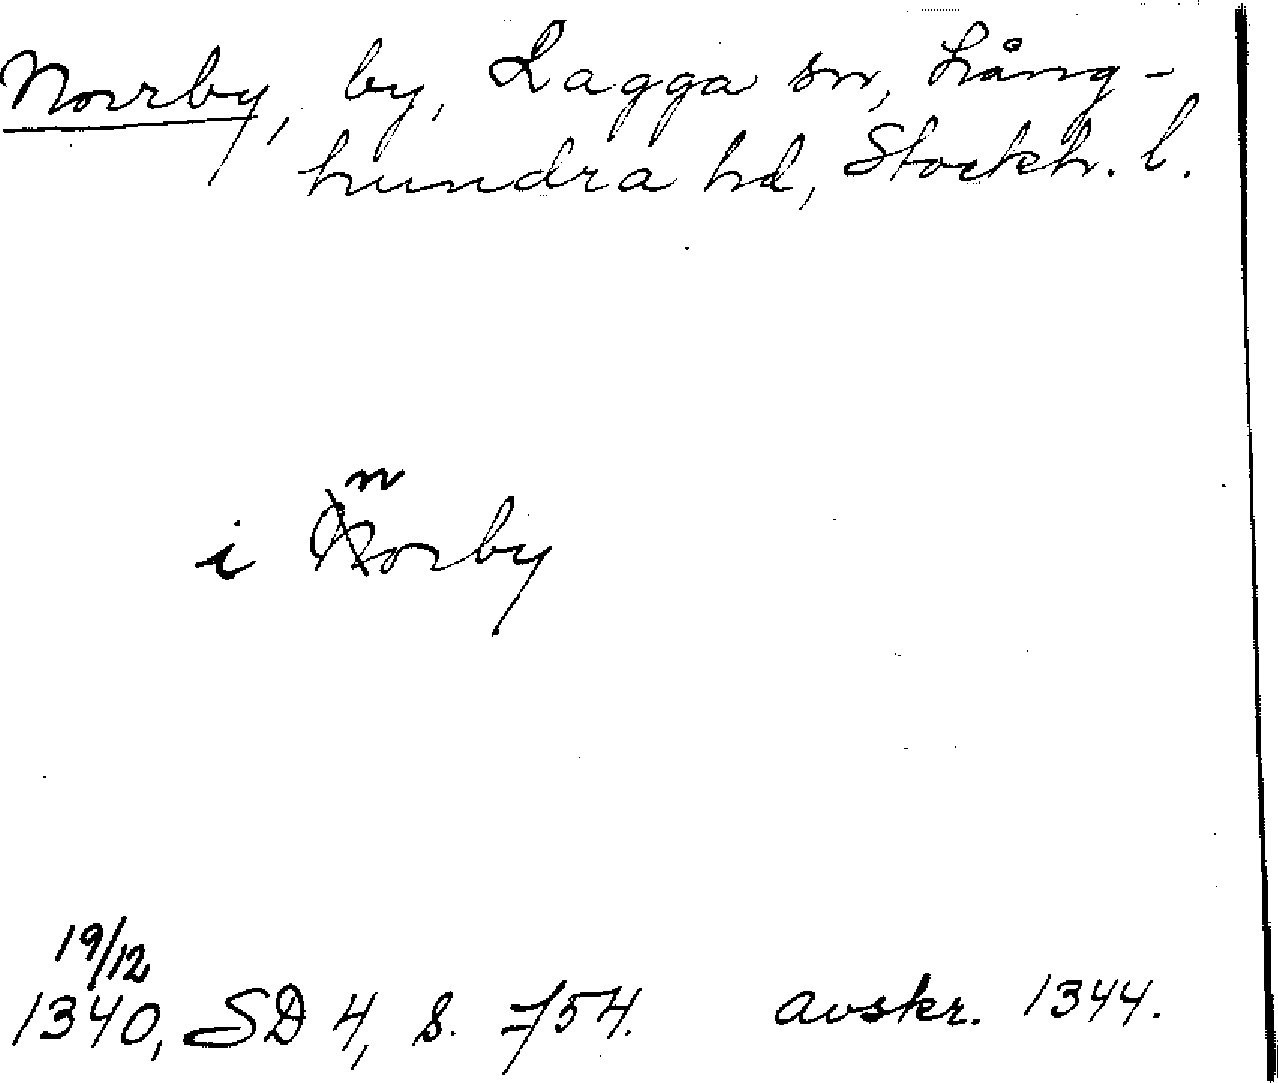 Norrby, by, Lagga sn, Lång-
hundra hd, Stockh. l.
i norby
19/12
1340, SD 4, s. 754. avskr. 1344.